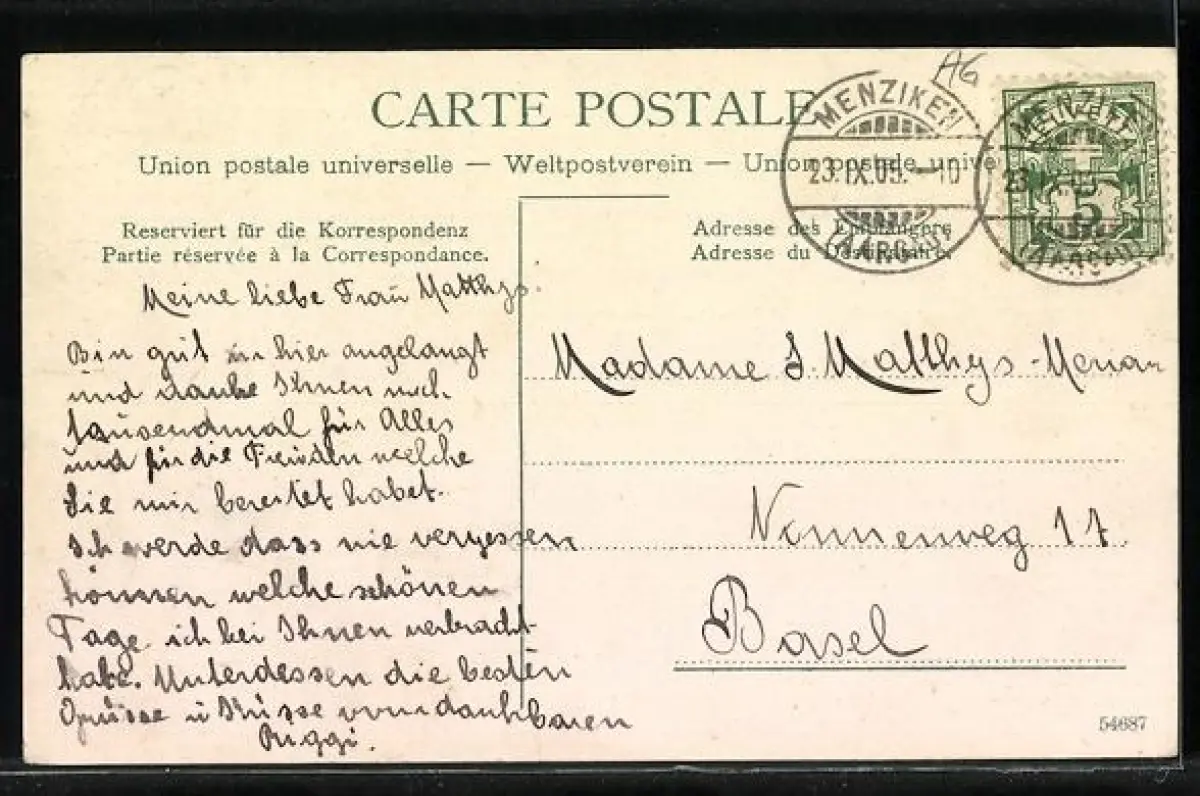 AG
CARTE POSTALE
Union postale universelle — Weltpostverein — Union postale unive
MENZIKEN
23.IX.05.-10
(AARGAU)
MENZIKEN
23.
(AARGAU)
5
Reserviert für die Korrespondenz
Partie réservée à la Correspondance.
Adresse des Empfängers
Adresse du Destinataire.
Meine liebe Frau Matthys.
Bin gut in hier angelangt
und danke Ihnen noch
tausendmal für Alles
und für die Freuden welche
Sie mir bereitet habet.
Ich werde dass nie vergessen
können welche schönen
Tage ich bei Ihnen verbracht
habe. Unterdessen die besten
Grüsse u Küsse vom dankbaren
Riggi.
Madame S. Matthys-Merian
Nonnenweg 17.
Basel
54687